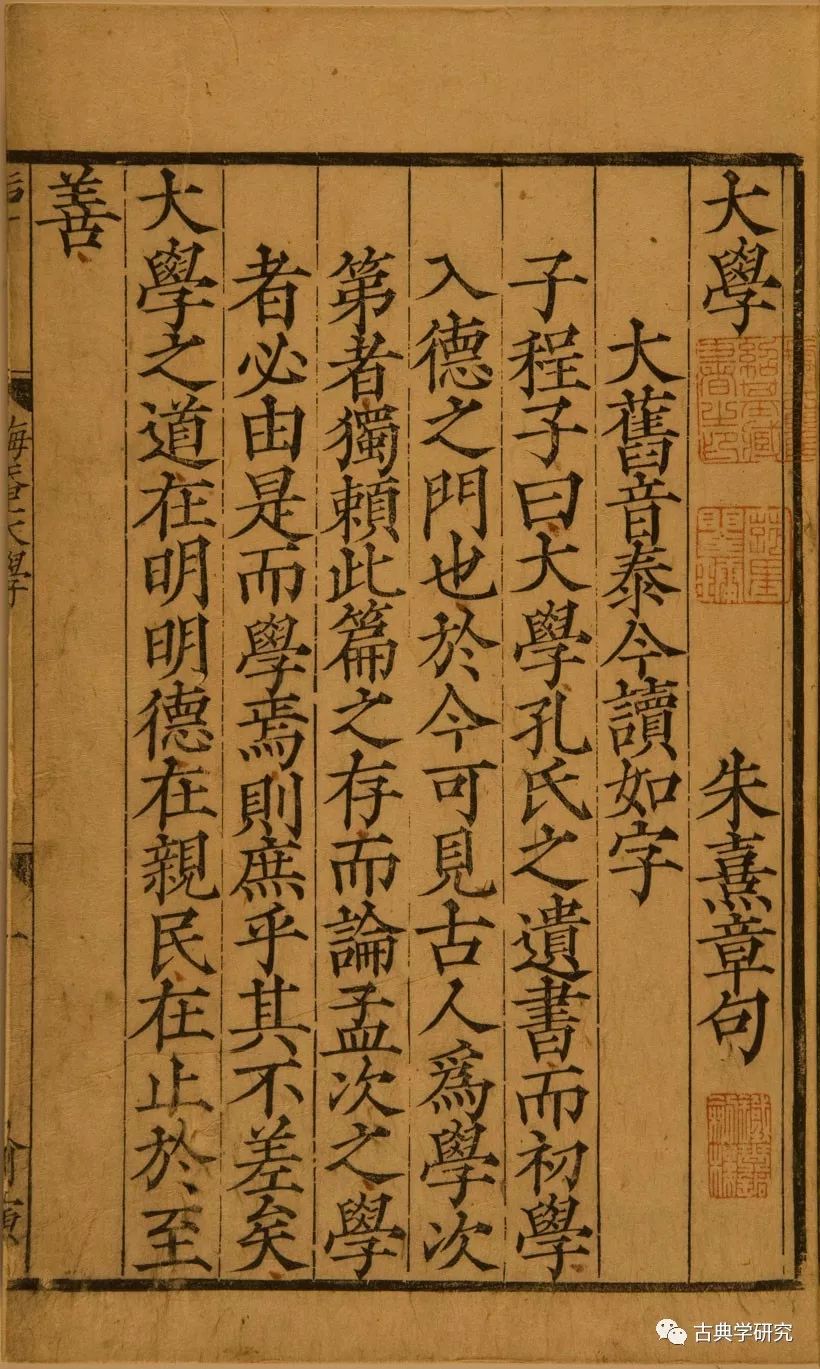 大學
朱熹章句
大舊音泰今讀如字
子程子曰大學孔氏之遺書而初學
入德之門也於今可見古人爲學次
第者獨賴此篇之存而論孟次之學
者必由是而學焉則庶乎其不差矣
大學之道在明明德在親民在止於至
善
大學
一
古典学研究